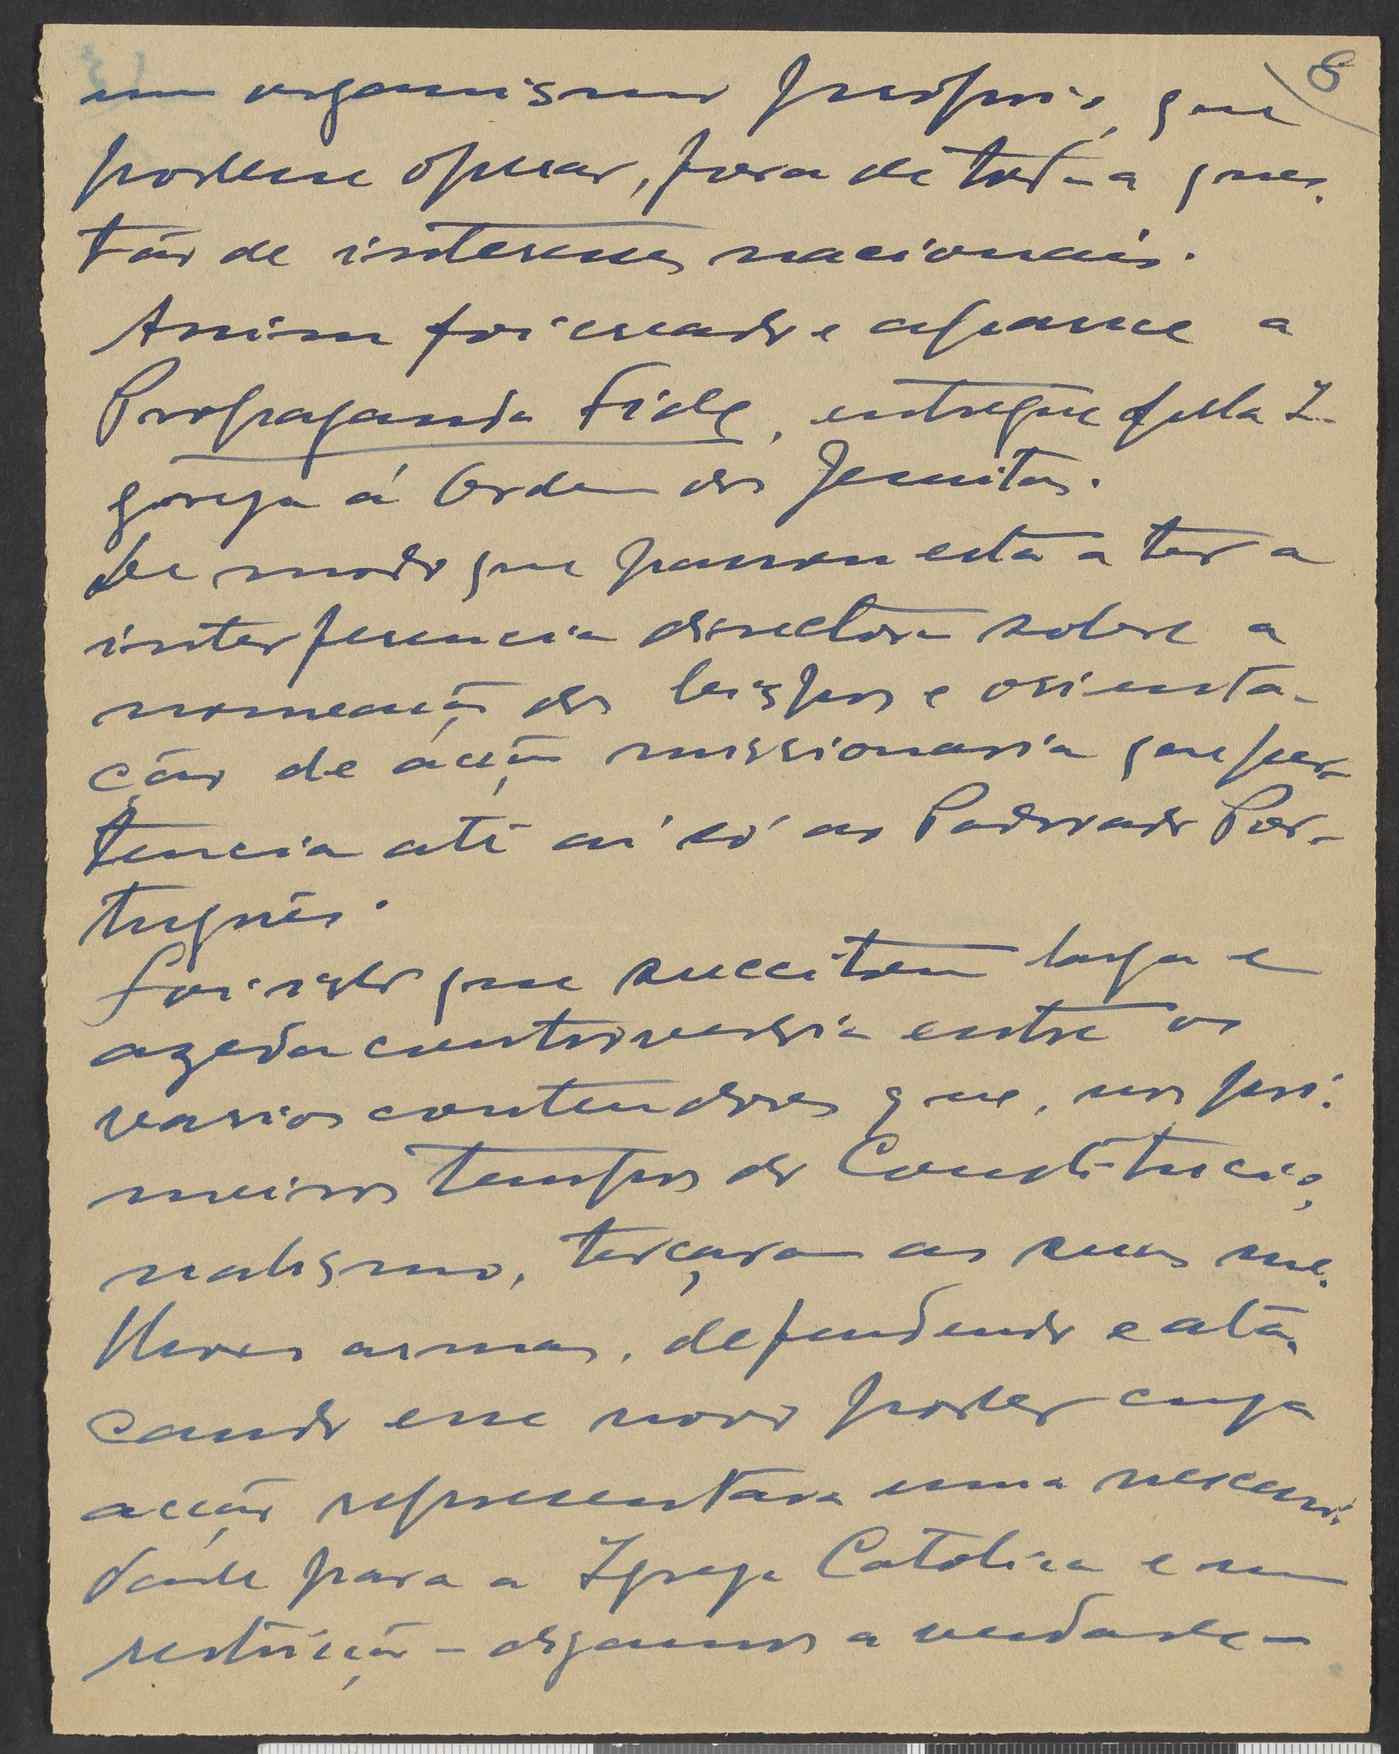 8
um organismo proprio, que
podesse operar, fora de toda a ques-
tão de interesses nacionais.
Assim foi creada e aparece a
Propaganda Fide, entregue pela I-
greja á Ordem dos Jesuitas.
De modo que passou esta a ter a
interferencia directa sobre a
nomeação dos bispos e orienta-
ção de acção missionaria que per-
tencia até aí só ao Padroado Por-
tuguês.
Foi isto que succitou larga e
azeda controversia entre os
varios contendores que, nos pri-
meiros tempos do Constitucio-
nalismo, terçaram as suas me-
lhores armas, defendendo e ata-
cando esse novo poder cuja
acção representava uma necessi-
dade para a Igreja Catolica e um
restrição - digamos a verdade -